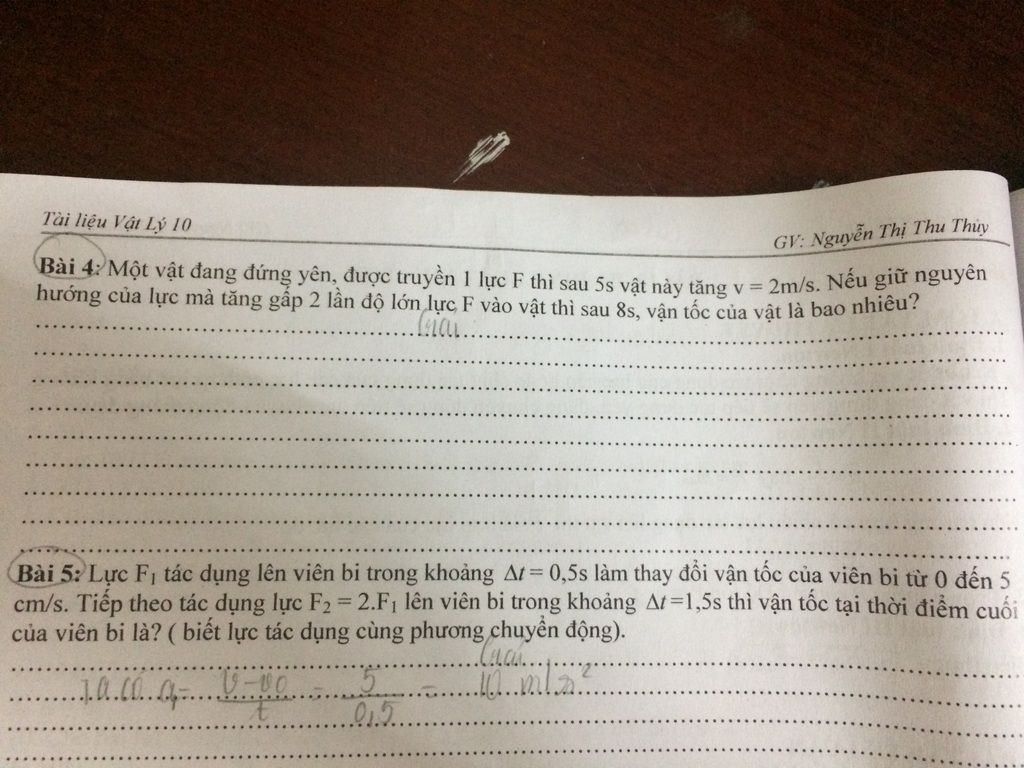 Tài liệu Vật Lý 10
GV: Nguyễn Thị Thu Thủy
Bài 4: Một vật đang đứng yên, được truyền 1 lực F thì sau 5s vật này tăng v = 2m/s. Nếu giữ nguyên
hướng của lực mà tăng gấp 2 lần độ lớn lực F vào vật thì sau 8s, vận tốc của vật là bao nhiêu?
Giải
Bài 5: Lực F₁ tác dụng lên viên bi trong khoảng Δt = 0,5s làm thay đổi vận tốc của viên bi từ 0 đến 5
cm/s. Tiếp theo tác dụng lực F₂ = 2.F₁ lên viên bi trong khoảng Δt =1,5s thì vận tốc tại thời điểm cuối
của viên bi là? ( biết lực tác dụng cùng phương chuyển động).
Giải
Ta có a = v-v0/t = 5/0,5 = 10 m/s²